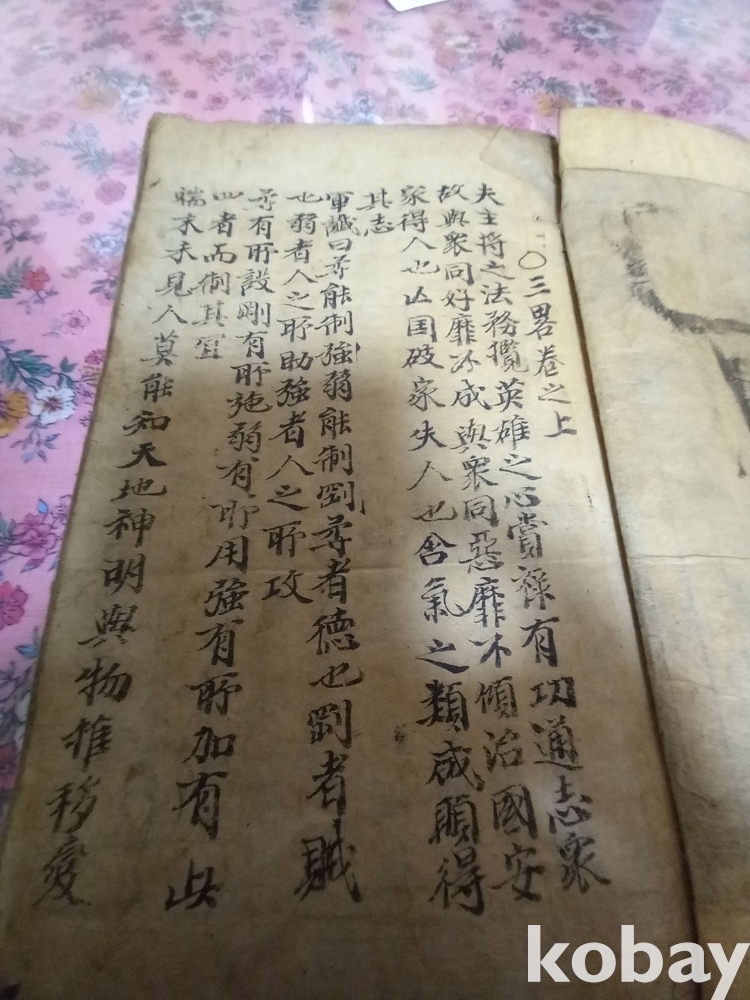 ○三畧卷之上
夫主將之法務攬英雄之心賞祿有功通志衆
故與衆同好靡不成與衆同惡靡不傾治國安
家得人也亾国破家失人也含氣之類咸願得
其志
軍讖曰柔能制強弱能制剛柔者德也剛者賊
也弱者人之所助強者人之所攻
柔有所設剛有所施弱有所用強有所加有此
四者而制其宜
端末未見人莫能知天地神明與物推移變
kobay